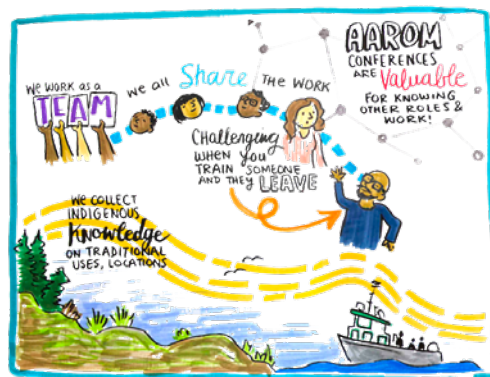 WE WORK AS A
TEAM
WE all Share THE WORK
AAROM
CONFERENCES
ARE Valuable
FOR KNOWING
OTHER ROLES &
WORK!
Challenging
WHEN you
TRAIN SOMEONE
AND THEY LEAVE
WE COLLECT
INDIGENOUS
Knowledge
ON TRADITIONAL
USES, LOCATIONS